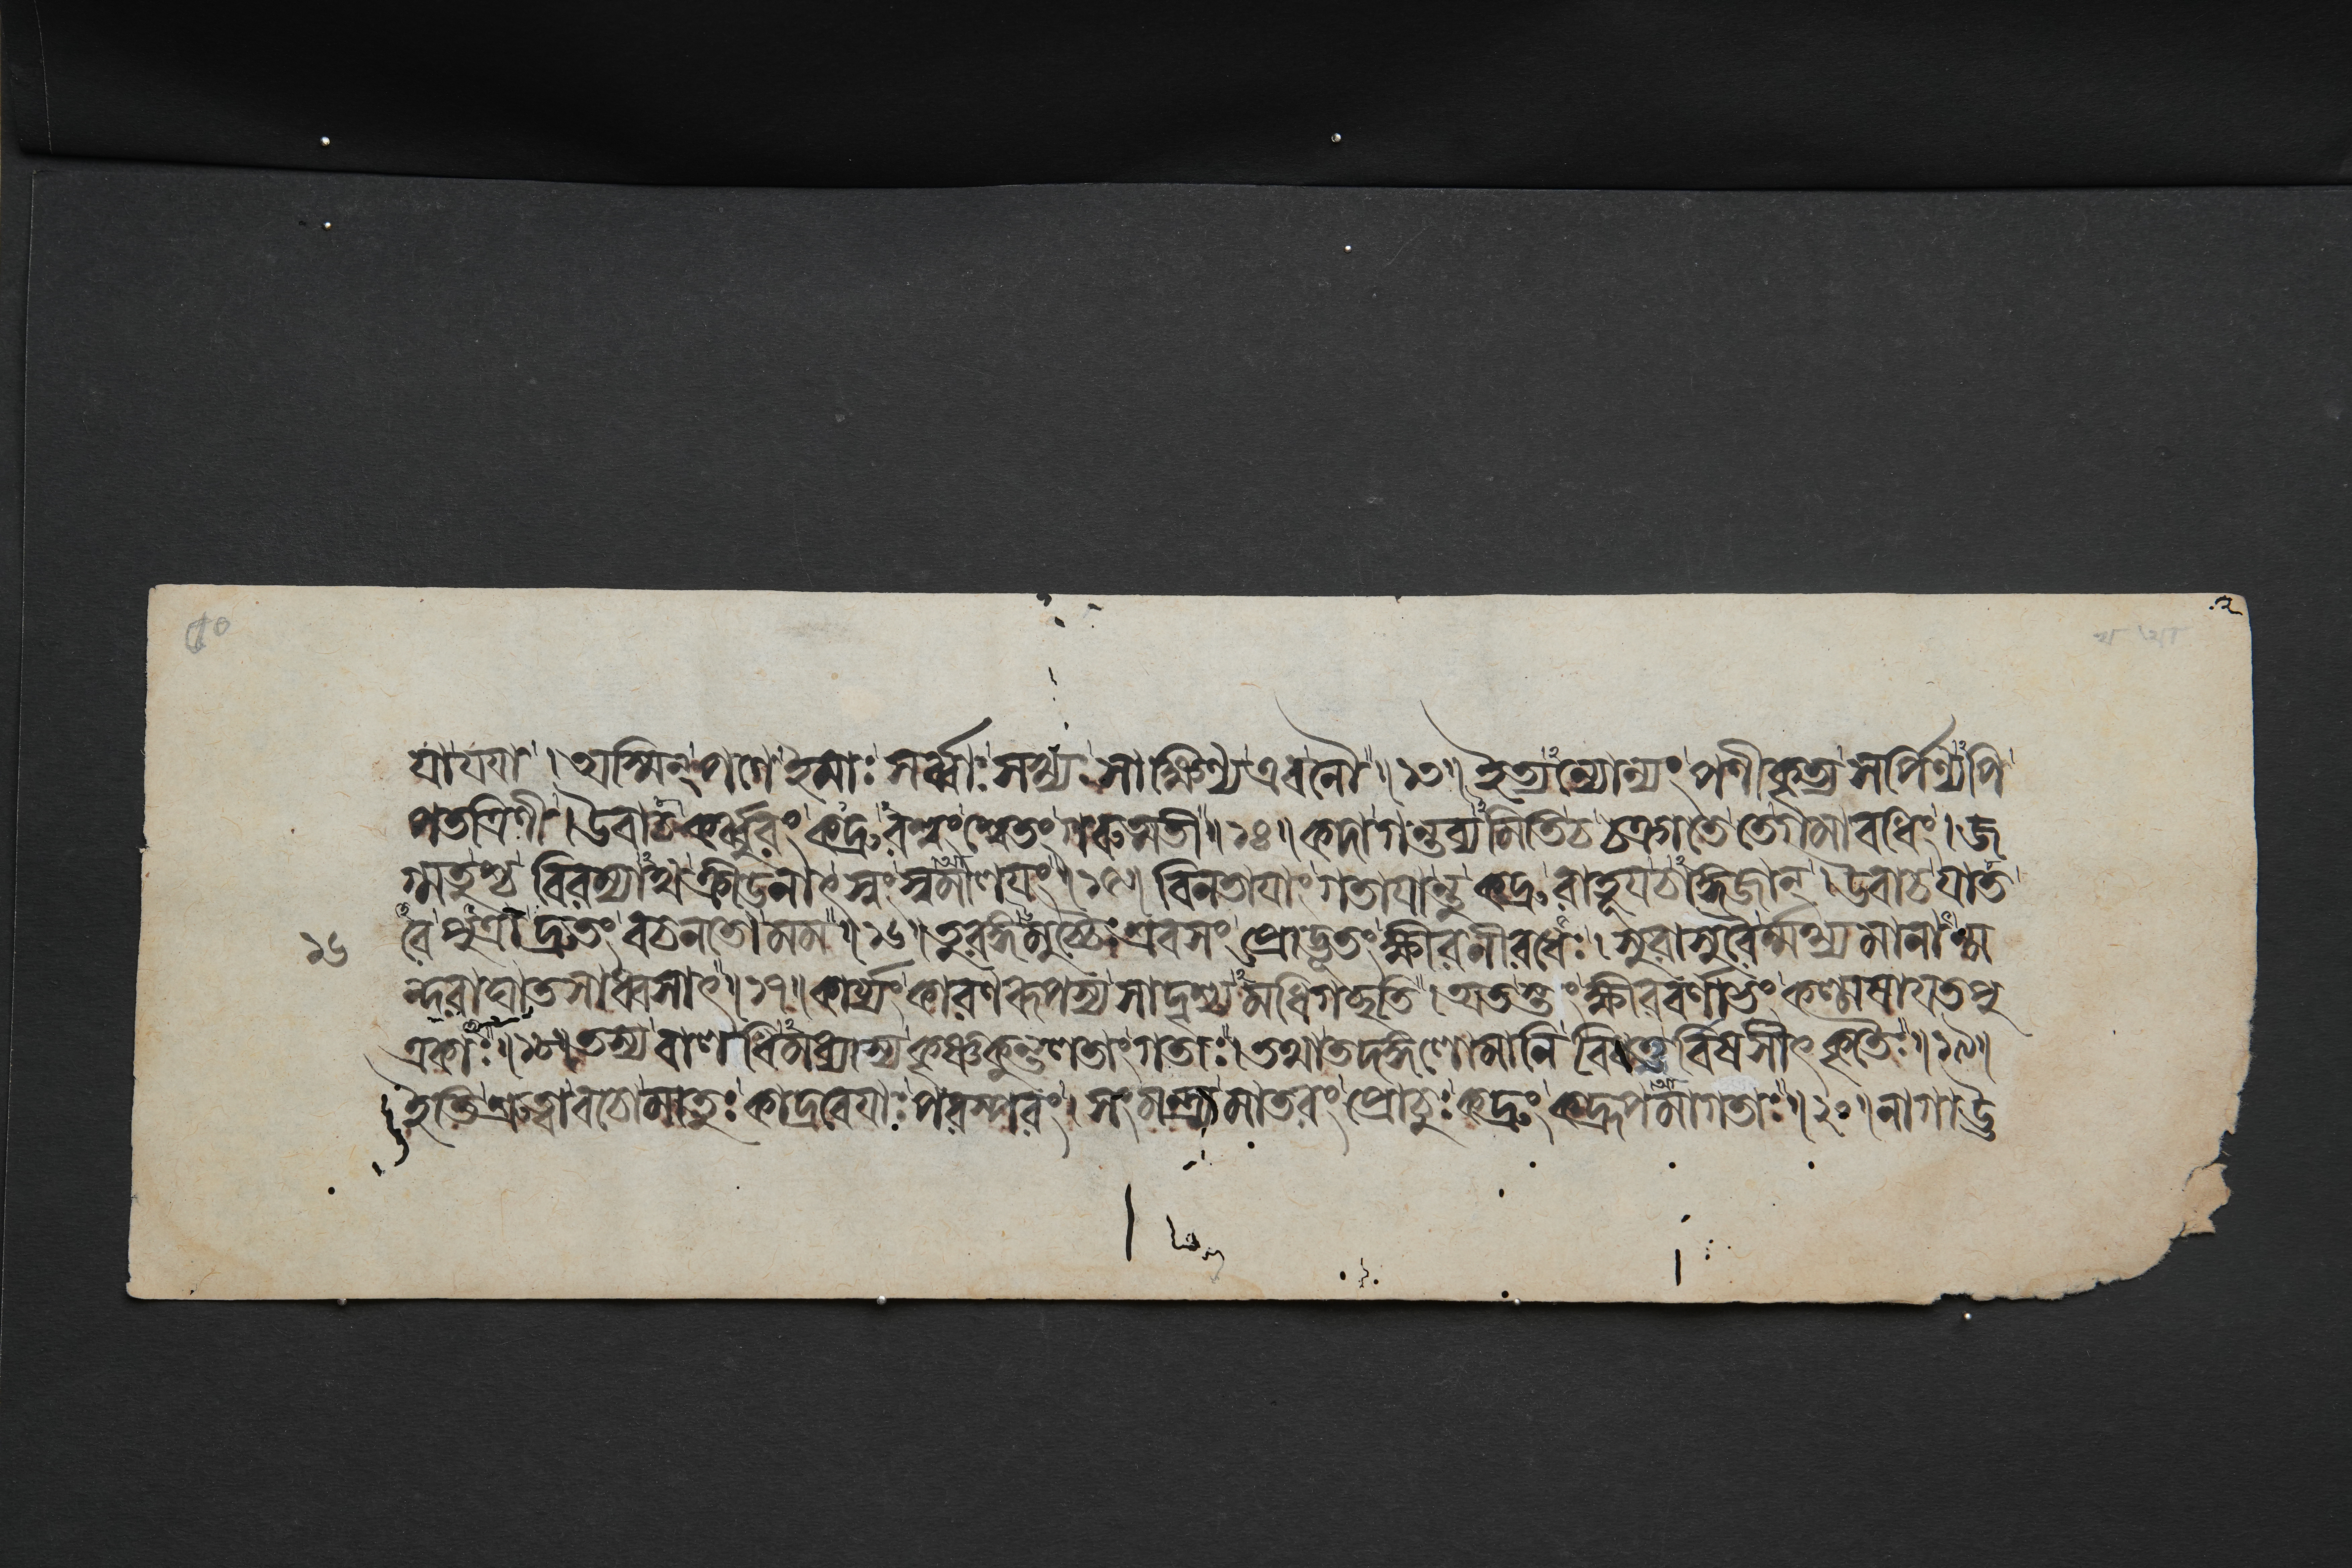 যাযযা । অস্মিন্ পণে ইমাঃ সর্ব্বাঃ সখ্যঃ সাক্ষিণ্য এব নৌ ॥ ১৩ ॥ ইত্যন্যোন্যং পণীকৃত্য সর্পিণ্যপি
পতত্রিণী । উবাচ কর্ব্বুরং কদ্রূরশ্বং শ্বেতং গরুত্মতী ॥ ১৪ ॥ কদা গন্তব্যমিতি চ চক্রাতে তে গমাবধিং । জ
গ্মতুশ্চ বিরম্যাথ ক্রীডনাৎ স্বং স্বমালযং ॥ ১৫ ॥ বিনতাযাং গতাযান্তু কদ্রূরাহূয চাঙ্গজান্ । উবাচ যাত
১৬ বৈ পুত্রা দ্রুতং বচনতো মম ॥ ১৬ ॥ তুরঙ্গমুচ্চৈঃশ্রবসং প্রোদ্ভূতং ক্ষীরনীরধেঃ । সুরাসুরৈর্ম্মথ্যমানান্ম
ন্দরাঘাতসাধ্বসাৎ ॥ ১৭ ॥ কার্য্যং কারণরূপস্য সাদৃশ্যমধিগচ্ছতি । অতস্তং ক্ষীরবর্ণাভং কল্মাষাযত পু
ত্রকাঃ ॥ ১৮ ॥ তস্য বালধিমধ্যাস্য কৃষ্ণকুন্তলতাং গতাঃ । তথা তদঙ্গলোমানি বিধত্ত বিষসীৎকৃতৈঃ ॥ ১৯ ॥
ইতি শ্রুত্বা বচো মাতুঃ কাদ্রবেযাঃ পরস্পরং । সংমন্ত্র্য মাতরং প্রোচুঃ কদ্রুং কদ্রূপমাগতাঃ ॥ ২০ ॥ নাগা উ